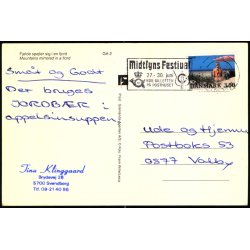 Fjelde spejler sig i en fjord
Mountains mirrored in a fjord
Småt og Godt
Det bruges
JORDBÆR i
appelsinsuppen
Tina Klinggaard
5700 Svendborg
Tlf. 09-21 40 98
Midtfyns Festival
27-30 juni
KØB BILLETTEN
PÅ POSTHUSET
DANMARK 3.00
Ude og Hjemme
Postboks 53
0877 Valby